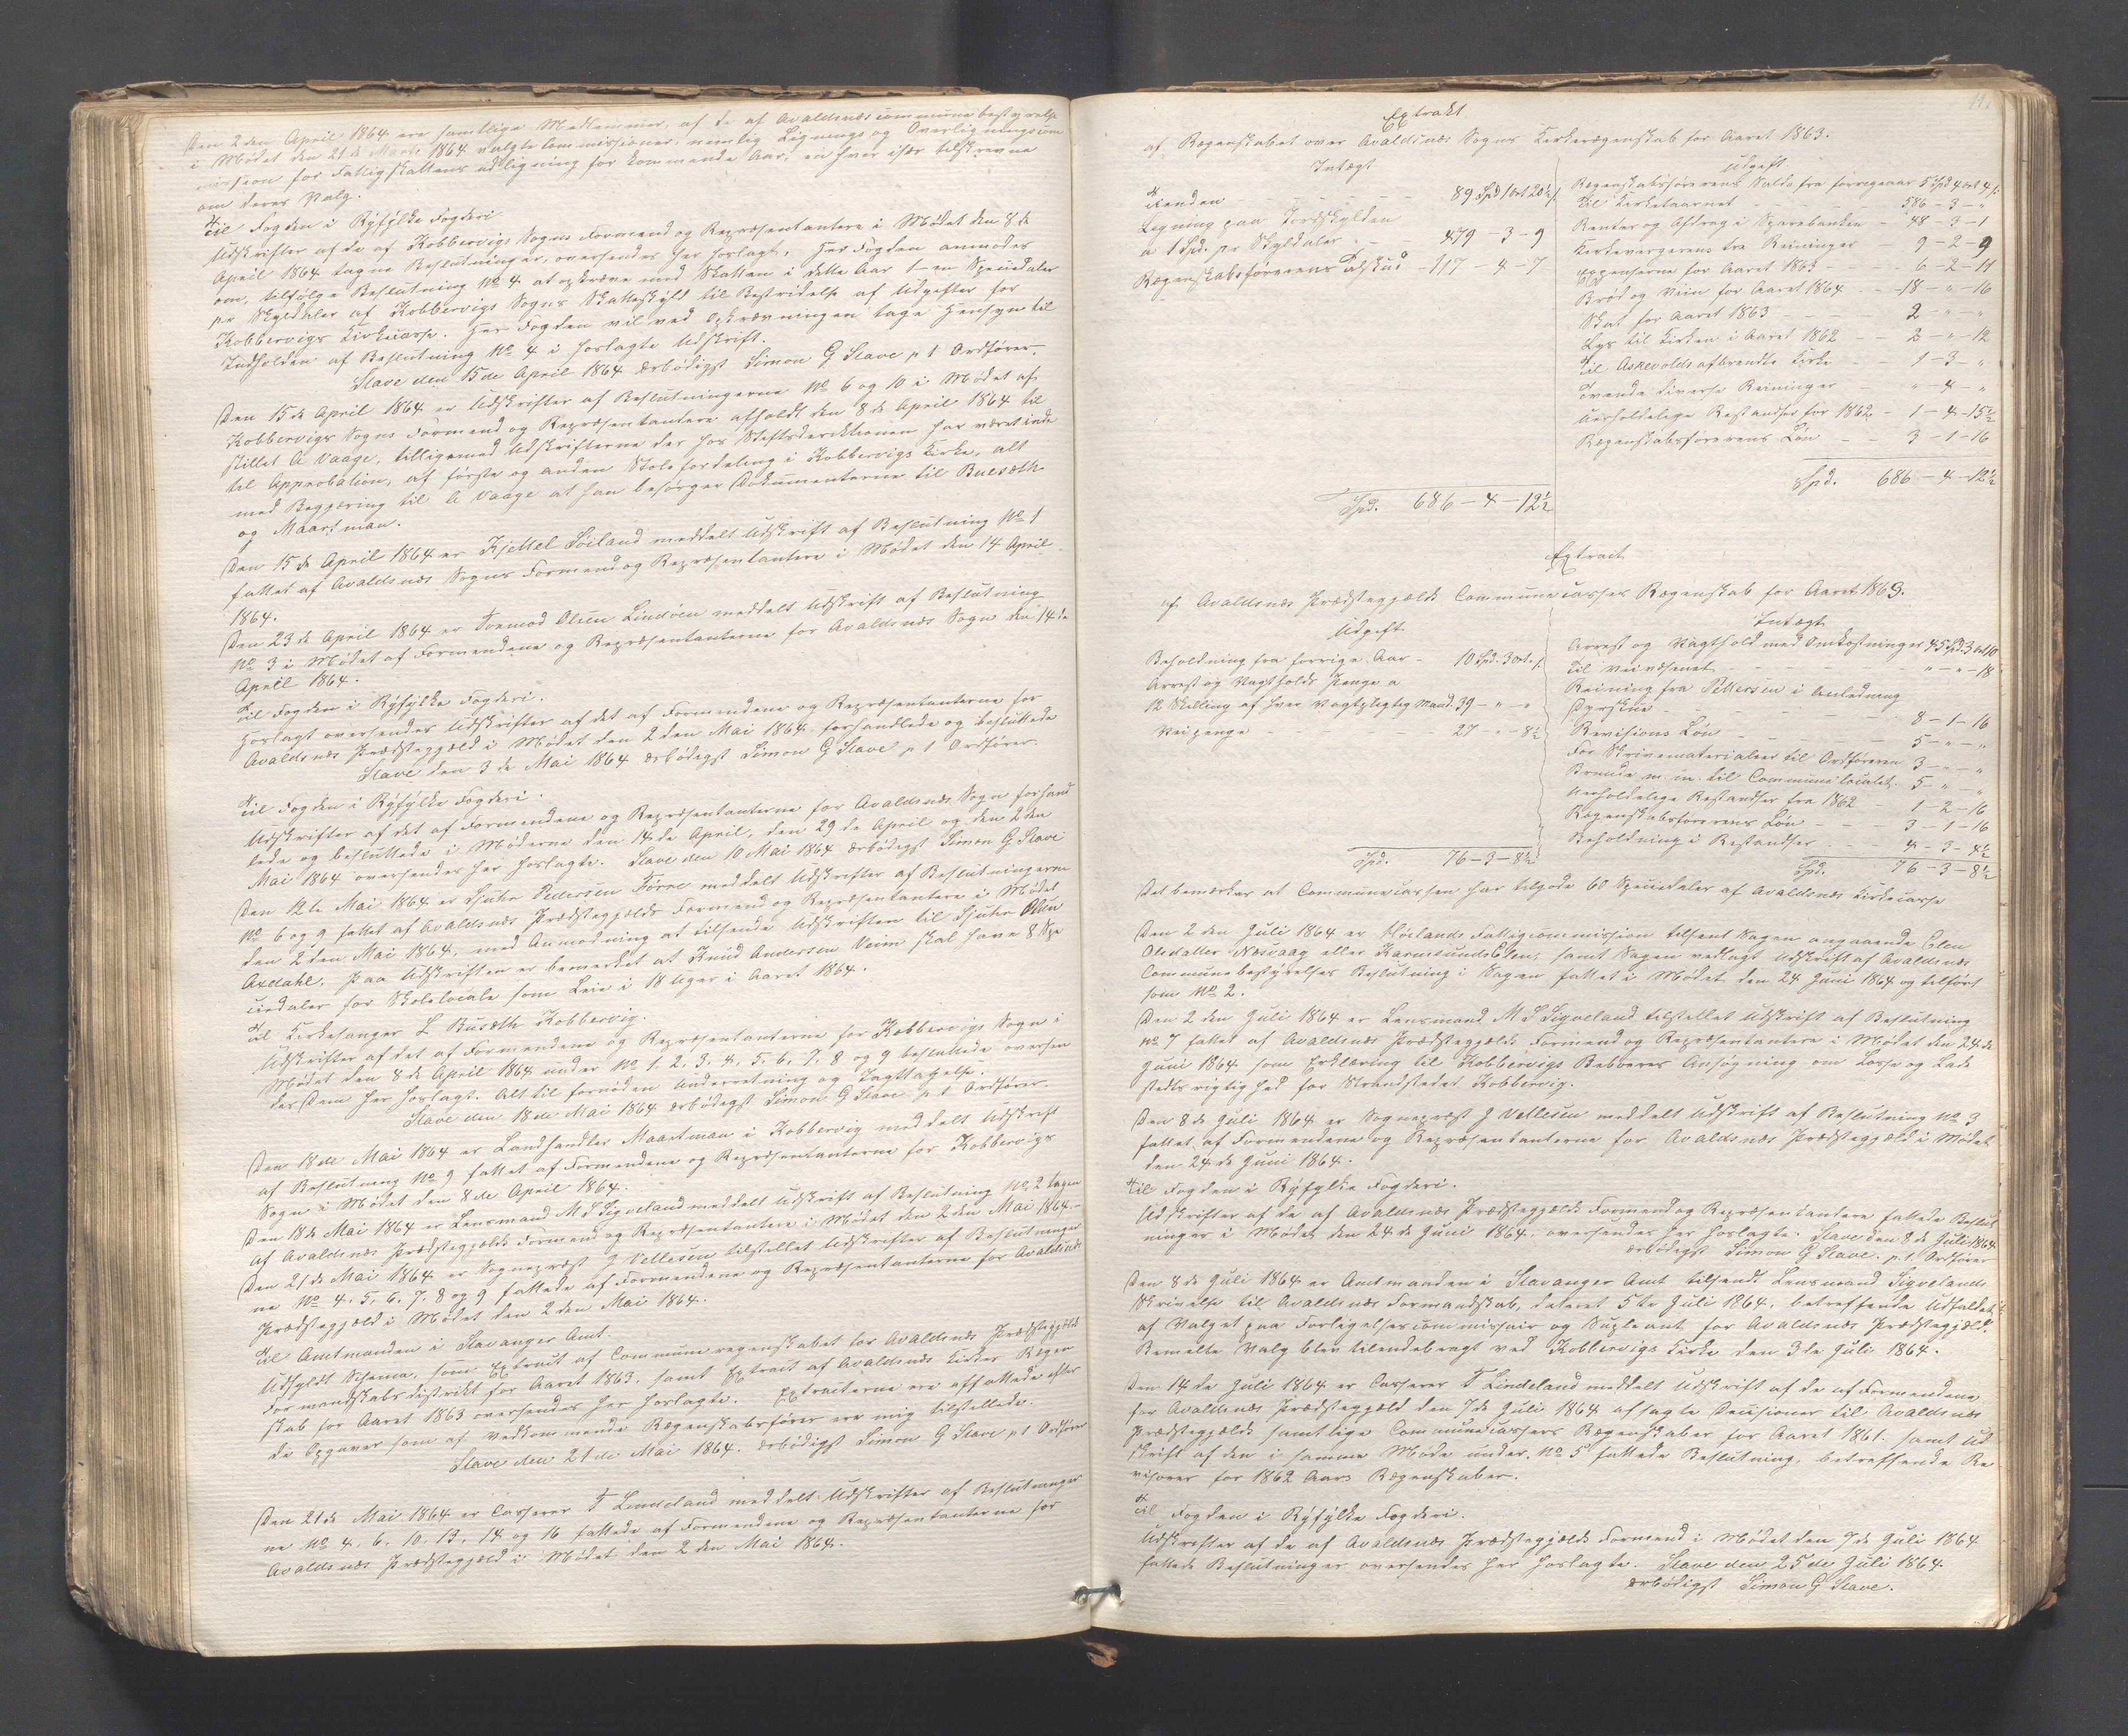 Den 2den April 1864 ere samtlige Medlemmer, af de af Avaldsnæs communebestyrelse
i Mødet den 21de Marts 1864 valgte Commissioner, nemlig Lignings og Overligningscom
mission for Fattigskattens udligning for kommende Aar, en hver især tilskrevne
om deres Valg.
Til Fogden i Ryfylke Fogderi
Udskrifter af de af Kobbervigs Sogns Formend og Repræsentantere i Mødet den 8de
April 1864 tagne Beslutninger, oversendes her hoslagt, Her Fogden anmodes
om, tilfølge Beslutning No 4 at opkræve med Skatten i dette Aar 1-en Speciedaler
pr Skyldaler af Kobbervigs Sogns Skatteskyld til Bestridelse af Udgifter for
Kobbervigs Kirkecasse. Her Fogden vil ved Opkrævningen tage Hensyn til
Indholden af Beslutning No 4 i hoslagte Udskrift.
Stave den 15de April 1864 ærbødigst Simon G Stave p t Ordfører.
Den 15de April 1864 er Udskrifter af Beslutningerne No 6 og 10 i Mødet af
Kobbervigs Sogns Formend og Repræsentantere afholdt den 8de April 1864 til
stillet A Vaage, tilligemed Udskrifterne der hos Stiftsdirektionen har været inde
til Approbation, af første og anden Stolefordeling i Kobbervigs Kirke, alt
med Begjæring til A Vaage at han besørger Dokumenterne til Buesæth
og Maartman.
Den 15de April 1864 er Kjettel Løiland meddelt Udskrift af Beslutning No 1
fattet af Avaldsnæs Sogns Formend og Repræsentantere i Mødet den 14 April
1864.
Den 23de April 1864 er Tormod Olsen Lindøen meddelt Udskrift af Beslutning
No 3 i Mødet af Formendene og Repræsentanterne for Avaldsnæs Sogn den 14de
April 1864.
Til Fogden i Ryfylke Fogderi.
Hoslagt oversendes Udskrifter af det af Formendene og Repræsentanterne for
Avaldsnæs Præstegjæld i Mødet den 2den Mai 1864 forhandlede og besluttede
Stave den 3de Mai 1864 ærbødigst Simon G Stave p t Ordfører.
Til Fogden i Ryfylke Fogderi.
Udskrifter af det af Formendene og Repræsentanterne for Avaldsnæs Sogn forhand
lede og besluttede i Møderne den 14de April, den 29de April og den 2den
Mai 1864 oversendes her hoslagte. Stave den 10 Mai 1864 ærbødigst Simon G Stave
Den 12te Mai 1864 er Sjuhr Pedersen Førre meddelt Udskrifter af Beslutningerne
No 6 og 9 fattet af Avaldsnæs Præstegjælds Formend og Repræsentantere i Mødet
den 2den Mai 1864, med Anmodning at tilsende Udskriften til Sjuhr Olsen
Axdahl, paa Udskriften er bemerket at Knud Andersen Veim skal have 8 Spe
ciedaler for Skolelocale som Leie i 18 Uger i Aaret 1864.
Til Kirkesanger L Busæth Kobbervig.
Udskrifter af det af Formendene og Repræsentanterne for Kobbervigs Sogn i
Mødet den 8de April 1864 under No 1. 2. 3. 4. 5. 6. 7. 8 og 9 besluttede oversen
des Dem her hoslagt. Alt til fornøden Underretning og Iagttagelse.
Stave den 18de Mai 1864 ærbødigst Simon G Stave p t Ordfører.
Den 18de Mai 1864 er Landhandler Maartman i Kobbervig meddelt Udskrift
af Beslutning No 9 fattet af Formendene og Repræsentanterne for Kobbervigs
Sogn i Mødet den 8de April 1864.
Den 18de Mai 1864 er Lensmand M S Sigveland meddelt Udskrift af Beslutning No 2 tagen
af Avaldsnæs Præstegjælds Formend og Repræsentantere i Mødet den 2den Mai 1864.-
Den 21de Mai 1864 er Sognepræst J Vellesen tilstillet Udskrifter af Beslutninger
ne No 4. 5. 6. 7. 8 og 9 fattede af Formendene og Repræsentanterne for Avaldsnæs
Præstegjæld i Mødet den 2den Mai 1864.
Til Amtmanden i Stavanger Amt.
Udfyldt Schema, som Extract af Communeregenskabet for Avaldsnæs Præstegjelds
Formandskabsdistrikt for Aaret 1863, samt Extract af Avaldsnæs Kirkes Regen
skab for Aaret 1863 oversendes her hoslagte. Extracterne ere affattede efter
de Opgaver som af vedkommende Regenskabsfører ere mig tilstillede.
Stave den 21de Mai 1864. ærbødigst Simon G Stave p t Ordfører
Den 21de Mai 1864 er Casserer T Lindeland meddelt Udskrifter af Beslutninger
ne No 4. 6. 10. 13. 14 og 16 fattede af Formendene og Repræsentanterne for
Avaldsnæs Præstegjæld i Mødet den 2den Mai 1864.
Extrakt
af Regenskabet over Avaldsnæs Sogns Kirkeregenskab for Aaret 1863.
Indtægt
Tienden - - - 89 Spd 1 ort 20½ s
Ligning paa Jordskylden
a 1 Spd. pr Skyldaler - - 479 - 3 - 9
Regenskabsførerens Tilskud - 117 - 4 - 7
Spd. 686 - 4 - 12½
Udgift.
Regenskabsførerens Saldo fra forrige aar 5 Spd 4 ort 4 s
Til Kirketaarnet - - - 586 - 3 - "
Renter og Afdrag i Sparebanken 48 - 3 - 1
Kirkevergerens tre Reininger 9 - 2 - 9
Expenserne for Aaret 1863 - - 6 - 2 - 11
Brød og Viin for Aaret 1864 - - 18 - " - 16
Skat for Aaret 1863 - - - 2 - " - "
Lys til Kirken i Aaret 1862 - - 2 - " - 12
Til Askevolds afbrendte Kirke - - 1 - 3 - "
Tvende diverse Reininger - " - 4 - "
Uerholdelige Restandser for 1862 - 1 - 4 - 15½
Regenskabsførerens Løn - - 3 - 1 - 16
Spd. 686 - 4 - 12½
Extract
af Avaldsnæs Præstegjælds Communecasses Regenskab for Aaret 1863.
Udgift
Beholdning fra forrige Aar - 10 Spd. 3 ort. s
Arrest og Vagtholds Penge a
12 Skilling af hver Vagtpligtig Mand 39 - " - "
Veipenge - - - 27 - " - 8½
Spd. 76 - 3 - 8½
Indtægt
Arrest og Vagthold med Omkostninger 45 Spd 3 ort 10
Til veivæsenet - - - " - " - 18
Reining fra Pettersen i Anledning
- - - 8 - 1 - 16
Revisions Løn - - - 5 - " - "
For Skrivematerialier til Ordføreren 3 - " - "
Brænde m. m. til Communelocalet. 5 - " - "
Uerholdelige Restandser fra 1862 - 1 - 2 - 16
Regenskabsførerens Løn - - 3 - 1 - 16
Beholdning i Restandser - - 4 - 3 - 4½
Spd. 76 - 3 - 8½
Det bemærkes at Communecassen har tilgode 60 Speciedaler af Avaldsnæs Kirkecasse
Den 2den Juli 1864 er Høilands Fattigcommission tilsent Sagen angaaende Elen
Olsdatter Næsvaag eller Karmsunds Elen, samt Sagen vedlagt Udskrift af Avaldsnæs
Communebestyrelses Beslutning i Sagen fattet i Mødet den 24 Juni 1864 og tilført
som No 2.
Den 2den Juli 1864 er Lensmand M S Sigveland tilstillet Udskrift af Beslutning
No 7 fattet af Avaldsnæs Præstegjælds Formend og Repræsentantere i Mødet den 24de
Juni 1864 som Erklæring til Kobbervigs Beboeres Ansøgning om Losse og Lade
stedsrigtighed for Strandstedet Kobbervig.
Den 8de Juli 1864 er Sognepræst J Vellesen meddelt Udskrift af Beslutning No 3
fattet af Formendene og Repræsentanterne for Avaldsnæs Præstegjæld i Mødet
den 24de Juni 1864.
Til Fogden i Ryfylke Fogderi.
Udskrifter af de af Avaldsnæs Præstegjælds Formend og Repræsentantere fattede Beslut
ninger i Mødet den 24de Juni 1864, oversendes her hoslagte. Stave den 8de Juli 1864
ærbødigst Simon G Stave. p. t Ordfører
Den 8de Juli 1864 er Amtmanden i Stavanger Amt tilsendt Lensmand Sigvelands
Skrivelse til Avaldsnæs Formandskab, dateret 5te Juli 1864, betreffende Udfaldet
af Valget paa Forligelsescommissair og Supleant for Avaldsnæs Præstegjæld.
Bemelte Valg blev tilendebragt ved Kobbervigs Kirke den 3de Juli 1864.
Den 14de Juli 1864 er Casserer T Lindeland meddelt Udskrift af de af Formendene
for Avaldsnæs Præstegjæld den 7de Juli 1864 afsagte Decisioner til Avaldsnæs
Præstegjælds samtlige Communecassers Regenskaber for Aaret 1861. samt Ud
skrift af den i samme Møde under No 5 fattede Beslutning, betreffende Re
visorer for 1862 Aars Regenskaber.
Til Fogden i Ryfylke Fogderi.
Udskrifter af de af Avaldsnæs Præstegjælds Formend i Mødet den 7de Juli 1864
fattede Beslutninger oversendes her hoslagte. Stave den 25de Juli 1864
ærbødigst Simon G Stave.